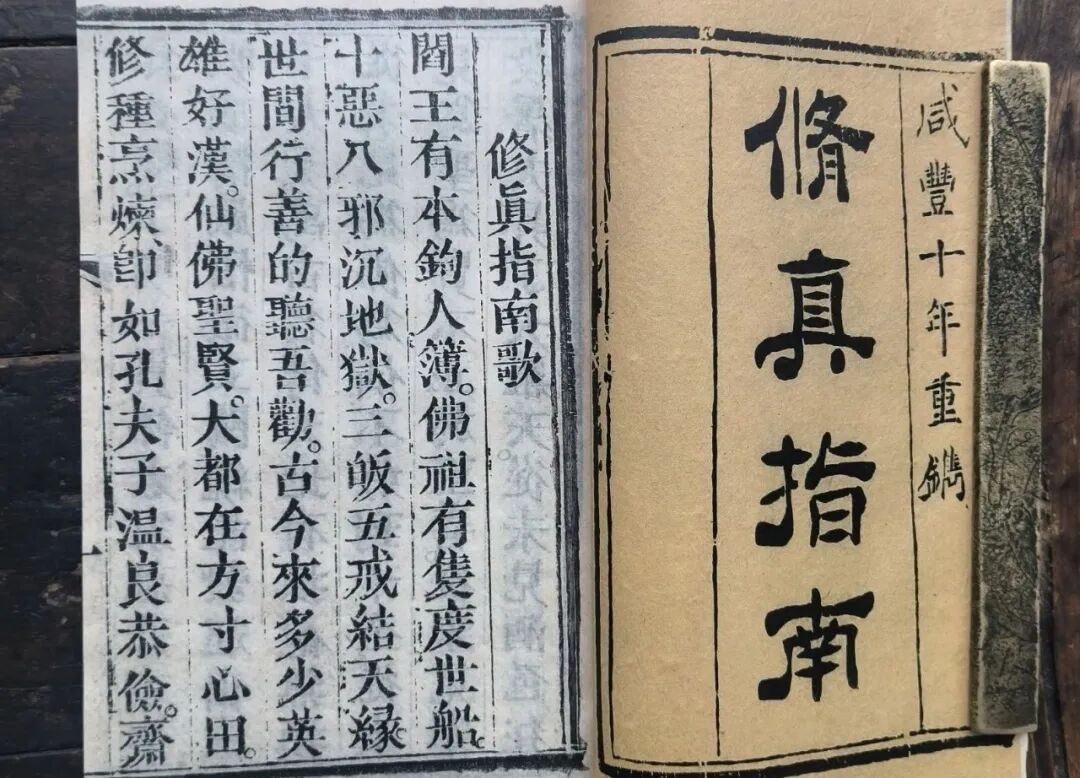 咸豐十年重鐫
脩真指南
修眞指南歌
閻王有本鈎人簿。佛祖有隻度世船。
十惡八邪沉地獄。三皈五戒結天緣
世間行善的聽吾勸。古今來多少英
雄好漢。仙佛聖賢。大都在方寸心田。
修種烹煉、卽如孔夫子溫良恭儉。齋